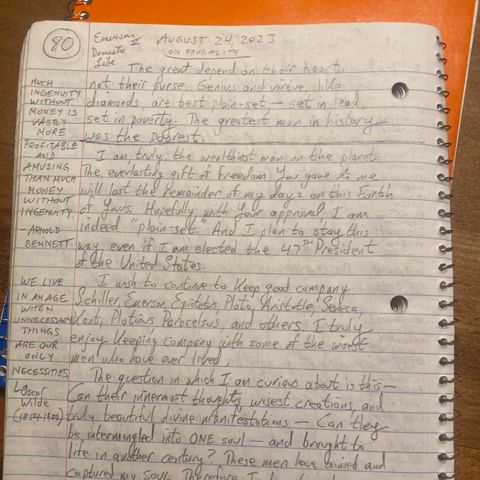 80
Emerson
Domestic
Life
AUGUST 24 2023
ON FRUGALITY
The great depend on their heart,
not their purse. Genius and virtue, like
diamonds, are best plain-set — set in lead,
set in poverty. The greatest man in history
was the poorest.
I am truly, the wealthiest man on the planet.
The everlasting gift of Freedom You gave to me
will last the remainder of my days on this Earth
of Yours. Hopefully, with Your approval, I am
indeed "plain-set." And I plan to stay this
way, even if I am elected the 47TH President
of the United States.
I wish to continue to keep good company
Schiller, Emerson, Epictetus, Plato, Aristotle, Seneca,
Kant, Plotinus, Paracelsus, and others. I truly
enjoy keeping company with some of the wisest
men who have ever lived.
The question in which I am curious about is this —
Can their innermost thoughts, wisest creations, and
truly beautiful divine manifestations — Can they
be intermingled into ONE soul — and brought to
life in another century? These men have and
captured my soul. Therefore I
MUCH
INGENUITY
WITHOUT
MONEY IS
VASTLY
MORE
PROFITABLE
AND
AMUSING
THAN MUCH
MONEY
WITHOUT
INGENUITY
- ARNOLD
BENNETT
WE LIVE
IN AN AGE
WHEN
UNNECESSARY
THINGS
ARE OUR
ONLY
NECESSITIES
Oscar
Wilde
(1854-1900)